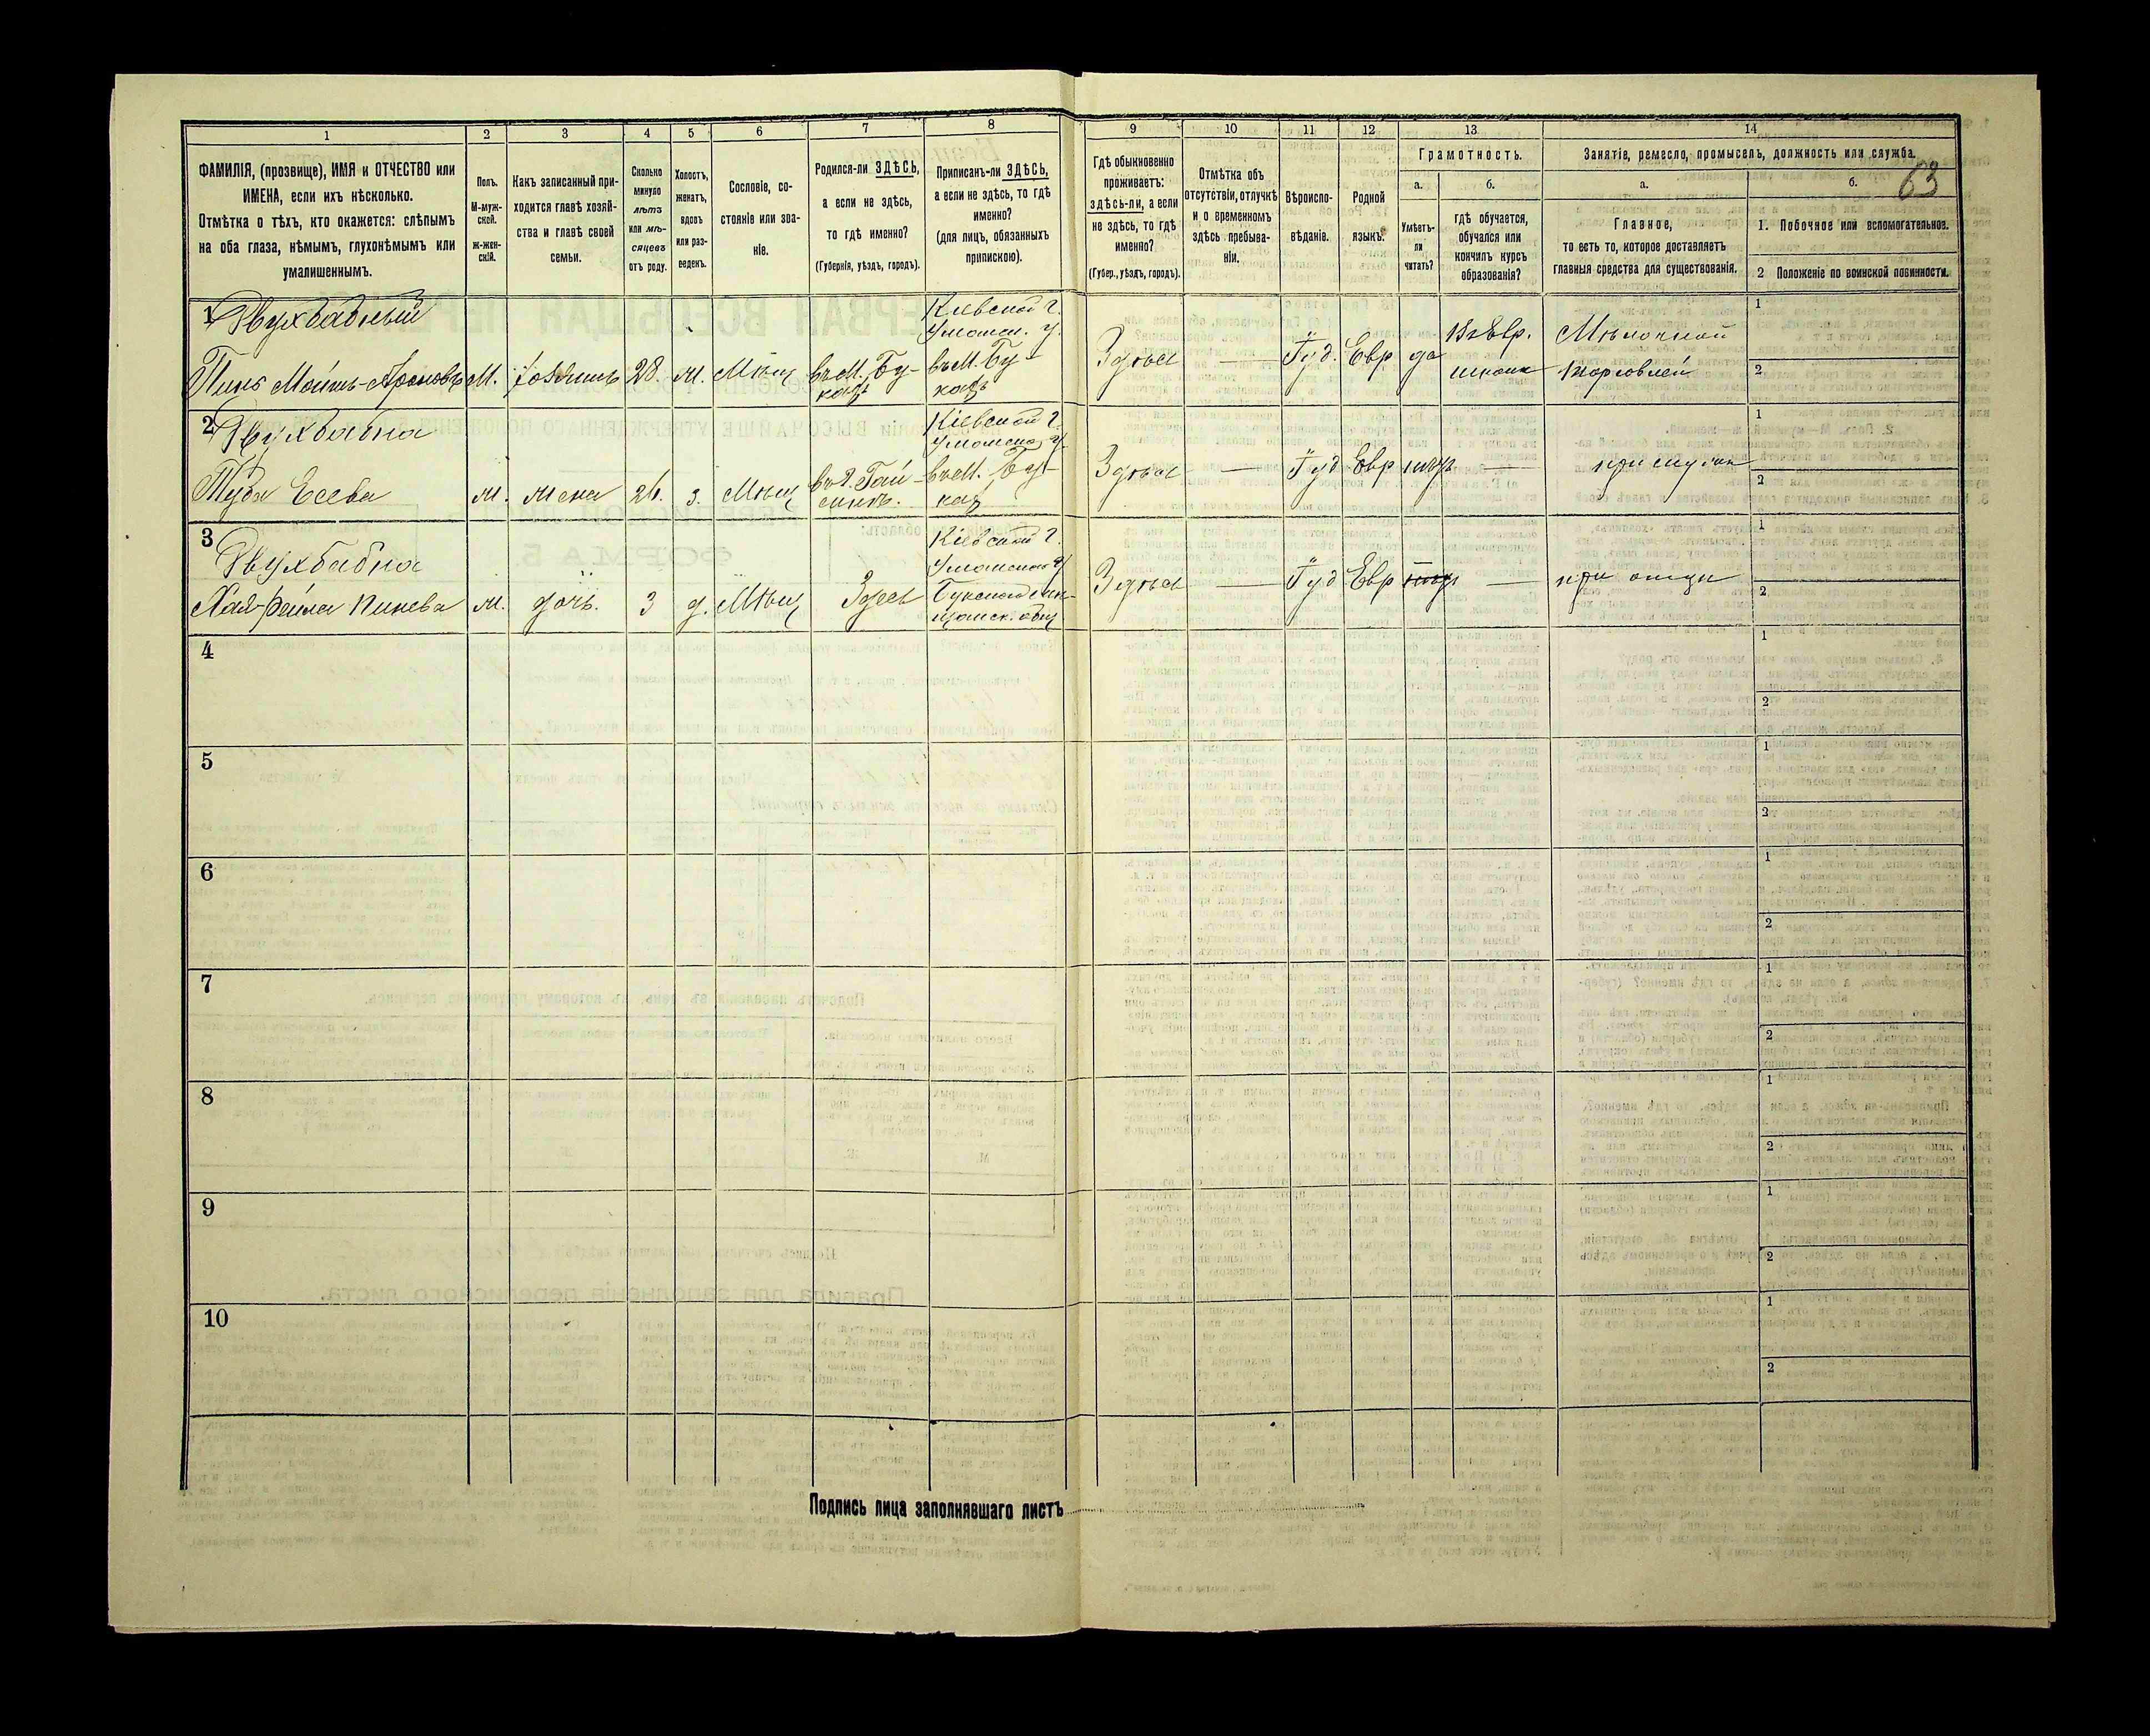 1
2
3
4
5
6
7
8
ФАМИЛІЯ, (прозвище), ИМЯ и ОТЧЕСТВО или
ИМЕНА, если ихъ нѣсколько.
Отмѣтка о тѣхъ, кто окажется: слѣпымъ
на оба глаза, нѣмымъ, глухонѣмымъ или
умалишеннымъ.
Полъ.
М-муж-
ской.
ж-жен-
скій.
Какъ записанный при-
ходится главѣ хозяй-
ства и главѣ своей
семьи.
Сколько
минуло
лѣтъ
или мѣ-
сяцевъ
отъ роду.
Холостъ,
женатъ,
вдовъ
или раз-
веденъ.
Сословіе, со-
стояніе или зва-
ніе.
Родился-ли ЗДѢСЬ,
а если не здѣсь,
то гдѣ именно?
(Губернія, уѣздъ, городъ).
Приписанъ-ли ЗДѢСЬ,
а если не здѣсь, то гдѣ
именно?
(для лицъ, обязанныхъ
припискою).
9
10
11
12
13
14
Гдѣ обыкновенно
проживаетъ:
здѣсь-ли, а если
не здѣсь, то гдѣ
именно?
(Губер., уѣздъ, городъ).
Отмѣтка объ
отсутствіи, отлучкѣ
и о временномъ
здѣсь пребыва-
ніи.
Вѣроиспо-
вѣданіе.
Родной
языкъ.
Грамотность.
а.
Умѣетъ-
ли
читать?
б.
гдѣ обучается,
обучался или
кончилъ курсъ
образованія?
Занятіе, ремесло, промыселъ, должность или служба.
63
а.
Главное,
то есть то, которое доставляетъ
главныя средства для существованія.
б.
1. Побочное или вспомогательное.
2 Положеніе по воинской повинности.
1 Двухбабный
М. хозяинъ 28 М. Мѣщ въ М. Бу-
Кіевской г.
Уманск. у.
въ М. Бу-
Здѣсь — Іуд. Евр да
Въ Евр.
школѣ
Мѣлочной
торговлей
1
2
2 Двухбабна
Есева м. жена 26. з. Мѣщ
Кіевской г.
въ М. Бу-
Здѣсь — Іуд Евр —
при мужѣ
1
2
3 Двухбабна
Хая- м. дочь. 3 д. Мѣщ Здесь
Кіевской г.
Здѣсь — Іуд Евр —
при отцѣ
1
2
4
1
2
5
1
2
6
1
2
7
1
2
8
1
2
9
1
2
10
1
2
Подпись лица заполнявшаго листъ